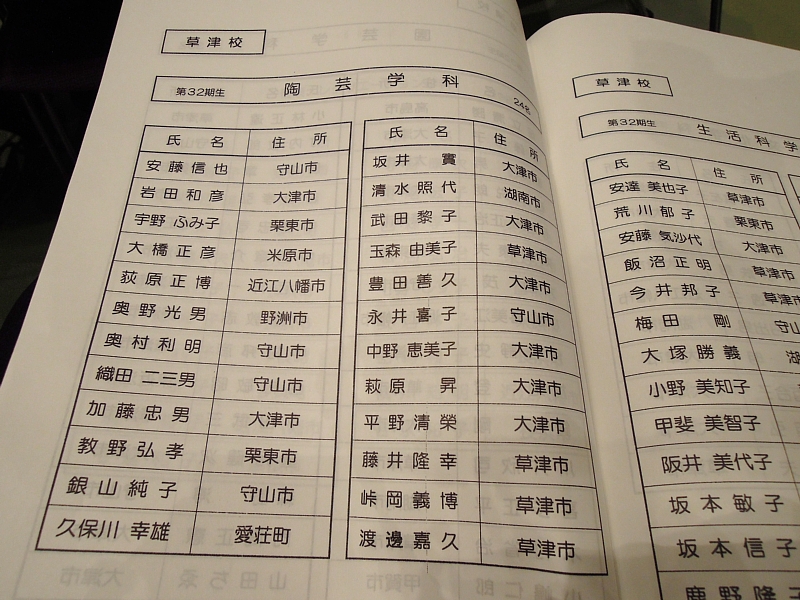 草津校
第32期生 陶芸学科 24名
氏名 住所
安藤信也 守山市
岩田和彦 大津市
宇野 ふみ子 栗東市
大橋正彦 米原市
荻原正博 近江八幡市
奥野光男 野洲市
奥村利明 守山市
織田 二三男 守山市
加藤忠男 大津市
教野弘孝 栗東市
銀山純子 守山市
久保川 幸雄 愛荘町
氏名 住所
坂井 實 大津市
清水照代 湖南市
武田黎子 大津市
玉森 由美子 草津市
豊田善久 大津市
永井喜子 守山市
中野 恵美子 大津市
萩原 昇 大津市
平野清榮 大津市
藤井隆幸 草津市
峠岡義博 草津市
渡邊嘉久 草津市
草津校
第32期生 生活科学
氏名 住所
安達 美也子 草津市
荒川郁子 栗東市
安藤 気沙代 大津市
飯沼正明 草津市
今井邦子 草津市
梅田 剛 守山
大塚勝義 湖
小野 美知子
甲斐 美智子
阪井 美代子
坂本敏子
坂本信子
鹿野隆子